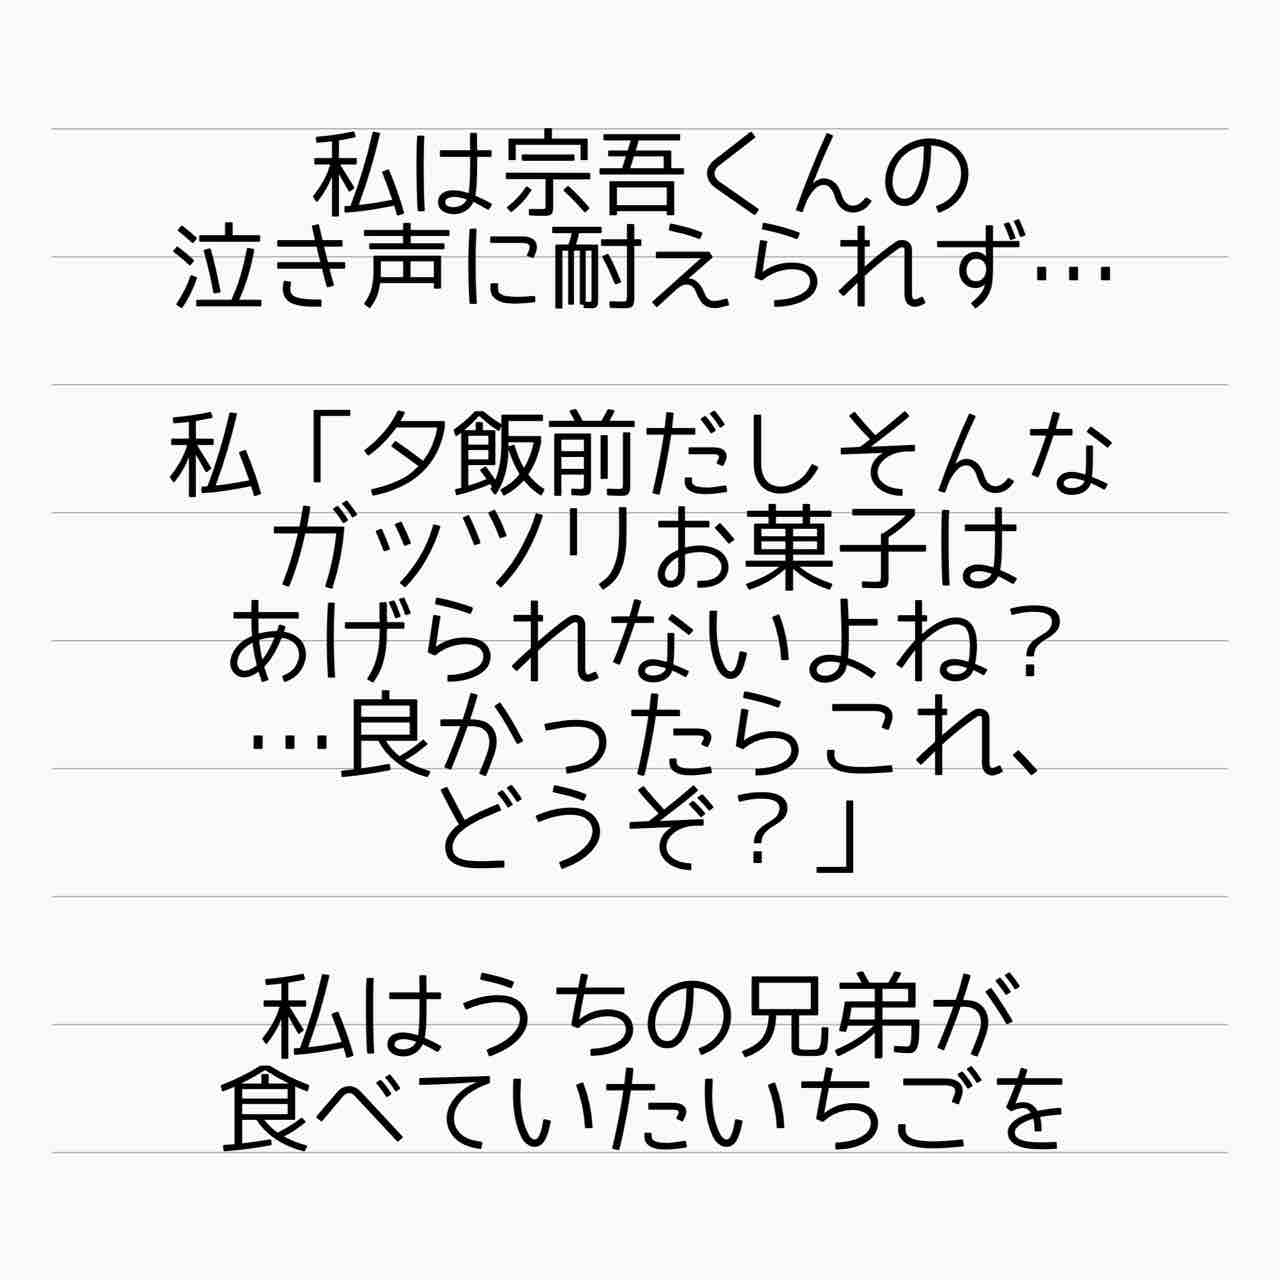 私は宗吾くんの
泣き声に耐えられず…
私「夕飯前だしそんな
ガッツリお菓子は
あげられないよね？
…良かったらこれ、
どうぞ？」
私はうちの兄弟が
食べていたいちごを